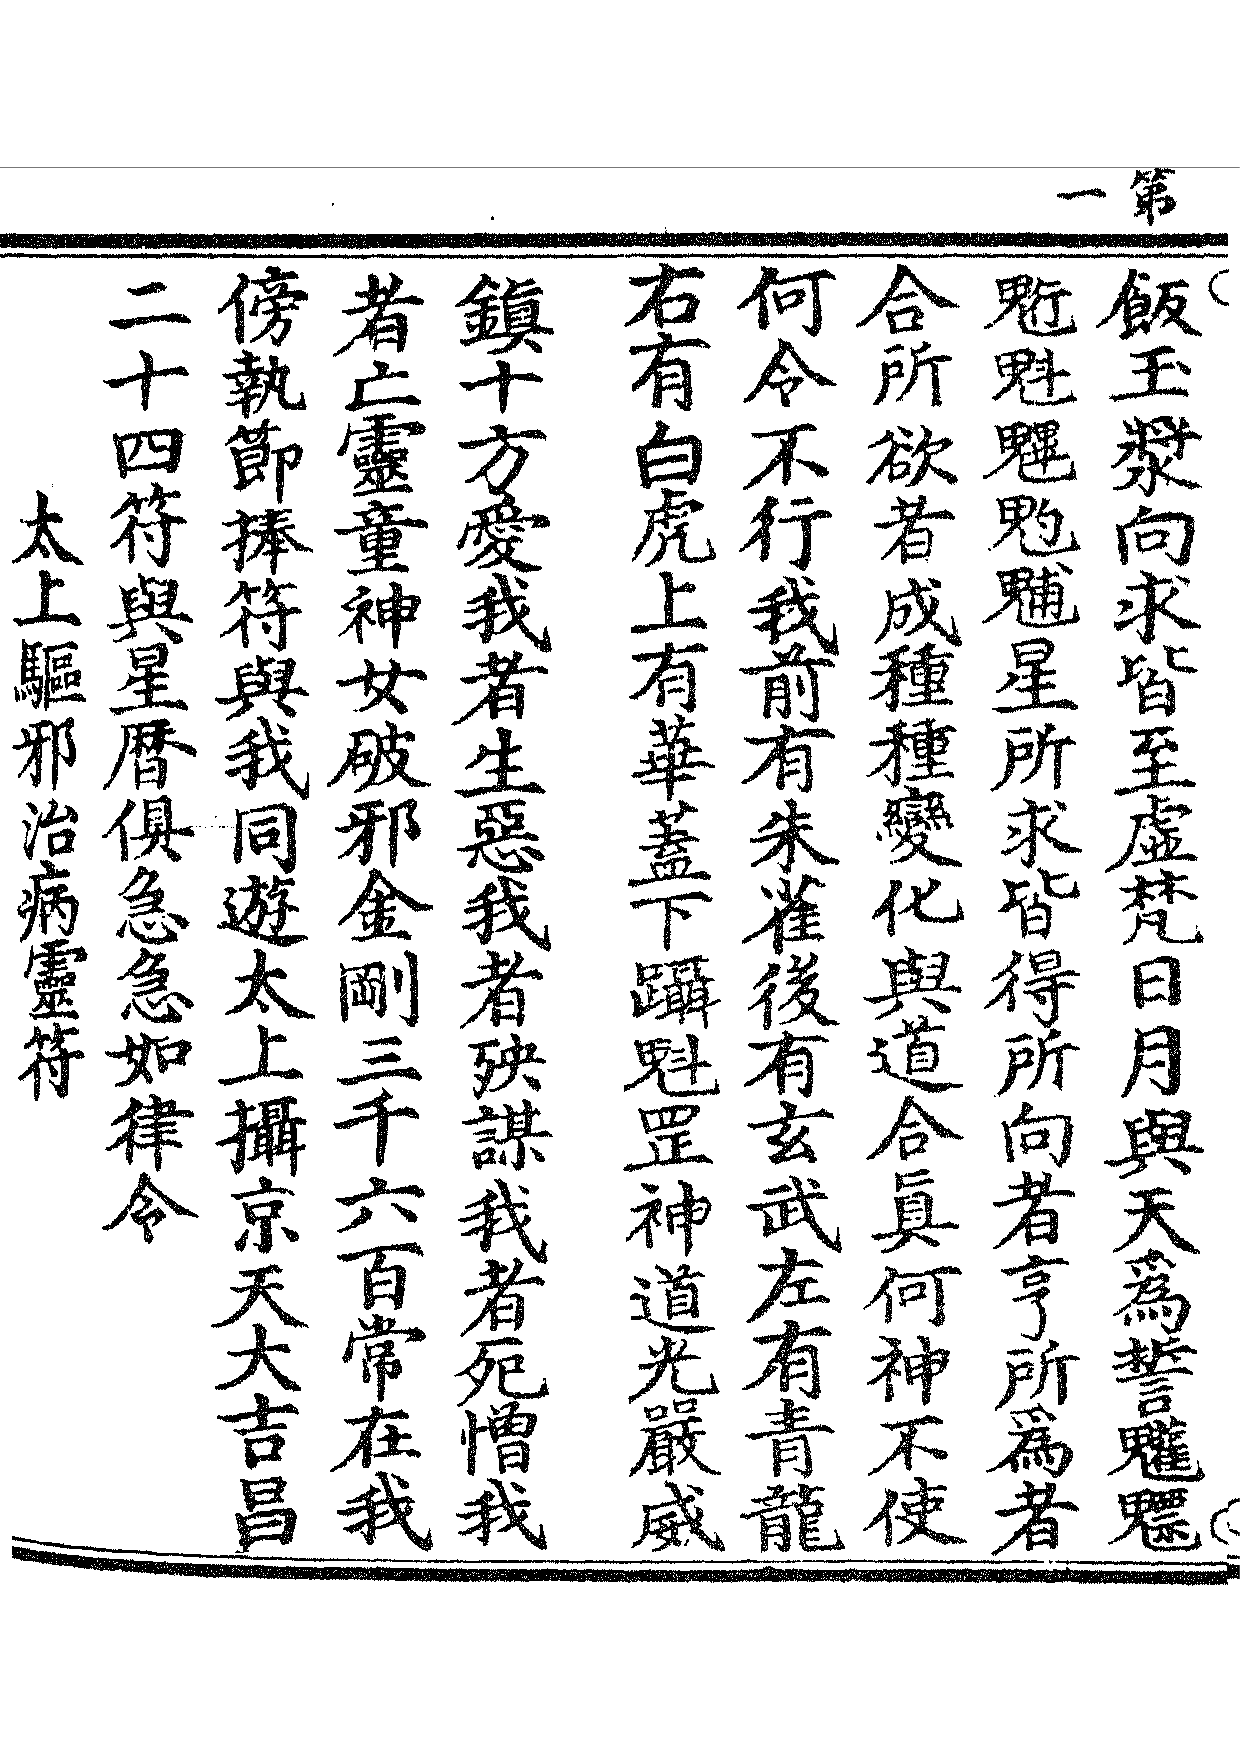 第一
飯玉漿向求皆至虛梵日月與天爲誓𩵄魒
䰢魁魓𩲃𩳐星所求皆得所向者亨所爲者
合所欲者成種種變化與道合眞何神不使
何令不行我前有朱雀後有玄武左有青龍
右有白虎上有華蓋下躡魁罡神道光嚴威
鎭十方愛我者生惡我者殃謀我者死憎我
者亡靈童神女破邪金剛三千六百常在我
傍執節捧符與我同遊太上攝京天大吉昌
二十四符與星曆俱急急如律令
太上驅邪治病靈符